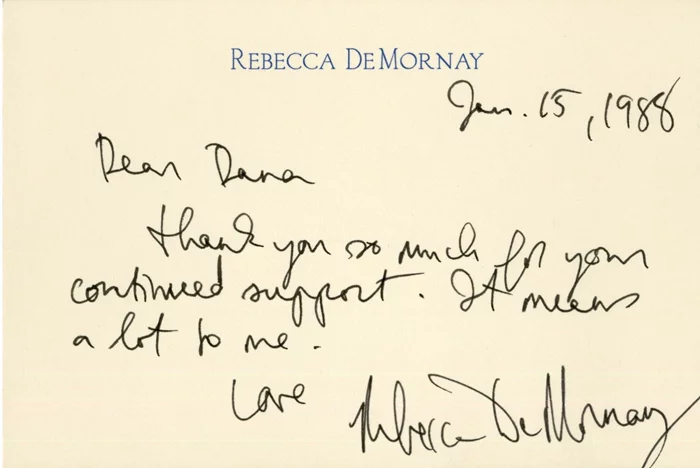 REBECCA DEMORNAY
Jan. 15, 1988
Dear Dana
Thank you so much for your
continued support. It means
a lot to me.
Love Rebecca DeMornay